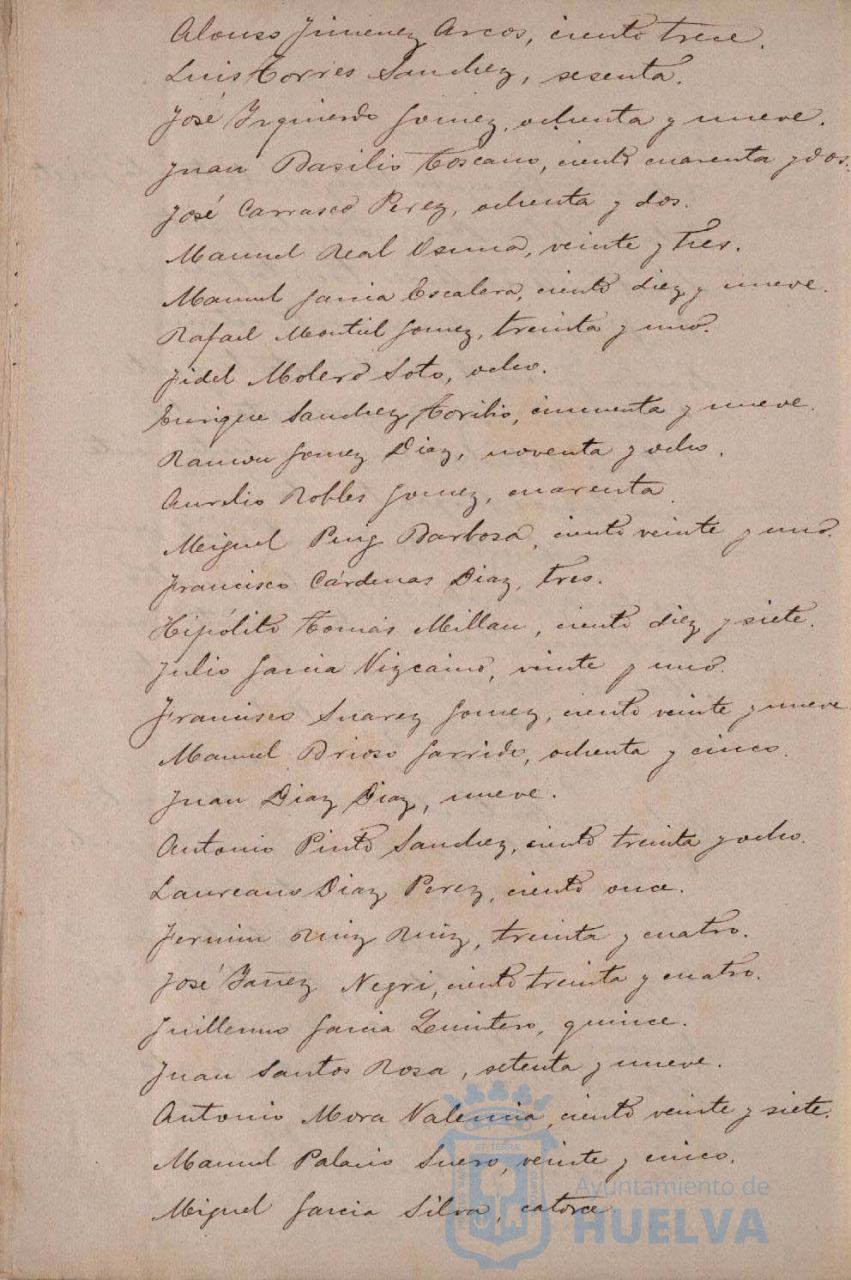 Alonso Jimenez Arcos, ciento trece.
Luis Torres Sanchez, sesenta.
José Izquierdo Gomez, ochenta y nueve.
Juan Basilio Toscano, ciento cuarenta y dos.
José Carrasco Perez, ochenta y dos.
Manuel Real Osuna, veinte y tres.
Manuel Garcia Escalera, ciento diez y nueve.
Rafael Montiel Gomez, treinta y uno.
Fidel Molero Soto, ocho.
Enrique Sanchez Toribio, cincuenta y nueve.
Ramon Gomez Diaz, noventa y ocho.
Aurelio Robles Gomez, cuarenta
Miguel Puig Barbosa, ciento veinte y uno.
Francisco Cárdenas Diaz, tres.
Hipólito Tomás Millan, ciento diez y siete.
Julio Garcia Vizcaino, veinte y uno.
Francisco Suarez Gomez, ciento veinte y nueve
Manuel Brioso Garrido, ochenta y cinco.
Juan Diaz Diaz, nueve.
Antonio Pinto Sanchez, ciento treinta y ocho.
Laureano Diaz Perez, ciento once.
Fermin Ruiz Ruiz, treinta y cuatro.
José Yañez Negri, ciento treinta y cuatro.
Guillermo Garcia Quintero, quince.
Juan Santos Rosa, setenta y nueve.
Antonio Mora Valencia, ciento veinte y siete.
Manuel Palacio Suero, veinte y cinco.
Miguel Garcia Silva, catorce
Ayuntamiento de
HUELVA